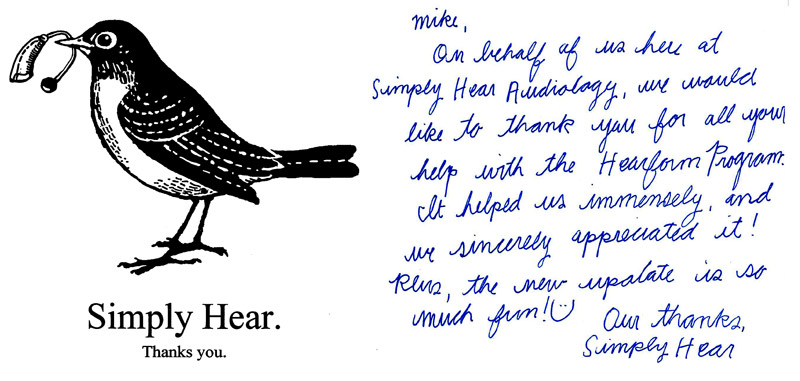 Simply Hear.
Thanks you.
Mike,
On behalf of us here at
Simply Hear Audiology, we would
like to thank you for all your
help with the Hearform Program.
It helped us immensely, and
we sincerely appreciated it!
Plus, the new update is so
much fun! :)
Our thanks,
Simply Hear